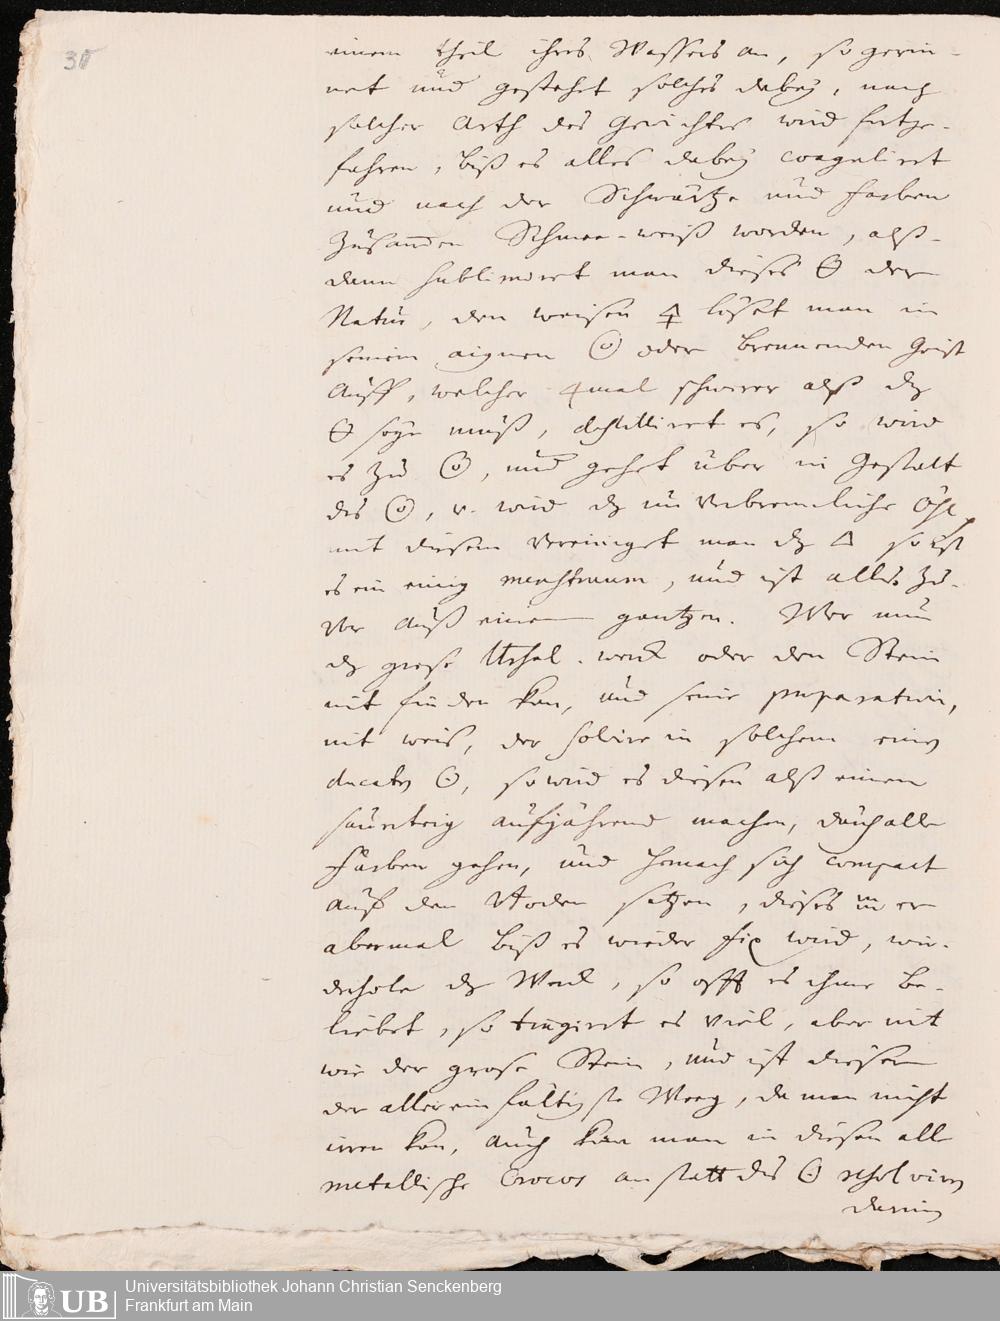 38
einem theil ihres Wassers an, so gerin-
net und gestehet solches dabey, nach
solcher Arth des gerichtes wird fortge-
fahren, biß es alles dabey coaguliret
und nach der Schwärtze und farben
zusamen Schnee-weiß worden, alß-
dann sublimiret man dieses 🜔 der
Natur, den weisen 🜍 löset man in
seinem aignen ☉ oder brennenden Geist
auff, welcher 4mal schwerer alß dz
🜔 seyn muß, destilliret es, so wird
es zu ☉, und gehet über in Gestalt
des ☉, v. wird dz unverbrennliche Öhl
mit diesem vereiniget man dz 🜂 so ist
es ein einig menstruum, und ist alles zu-
vor auß einem gantzen. Wer nun
dz grose Uhral. werk oder den Stein
nit finden kan, und seine preparation,
nit weis, der solvire in solchem einen
ducaten ☉, so wird es diesen alß einen
säurteig aufjährend machen, durch alle
farben gehen, und hernach sich compact
auf den Boden setzen, dieses er
abermal biß es wieder fix wird, wie-
derhole dz Werk, so offt es ihme be-
liebet, so tingiret es viel, aber nit
wie der grose Stein, und ist dieser
der allereinfältigste Weeg, da man nicht
irren kan, auch kan man in diesen alle
metallische Crocos anstatt des ☉ resolviren
darin
Universitätsbibliothek Johann Christian Senckenberg
Frankfurt am Main
UB